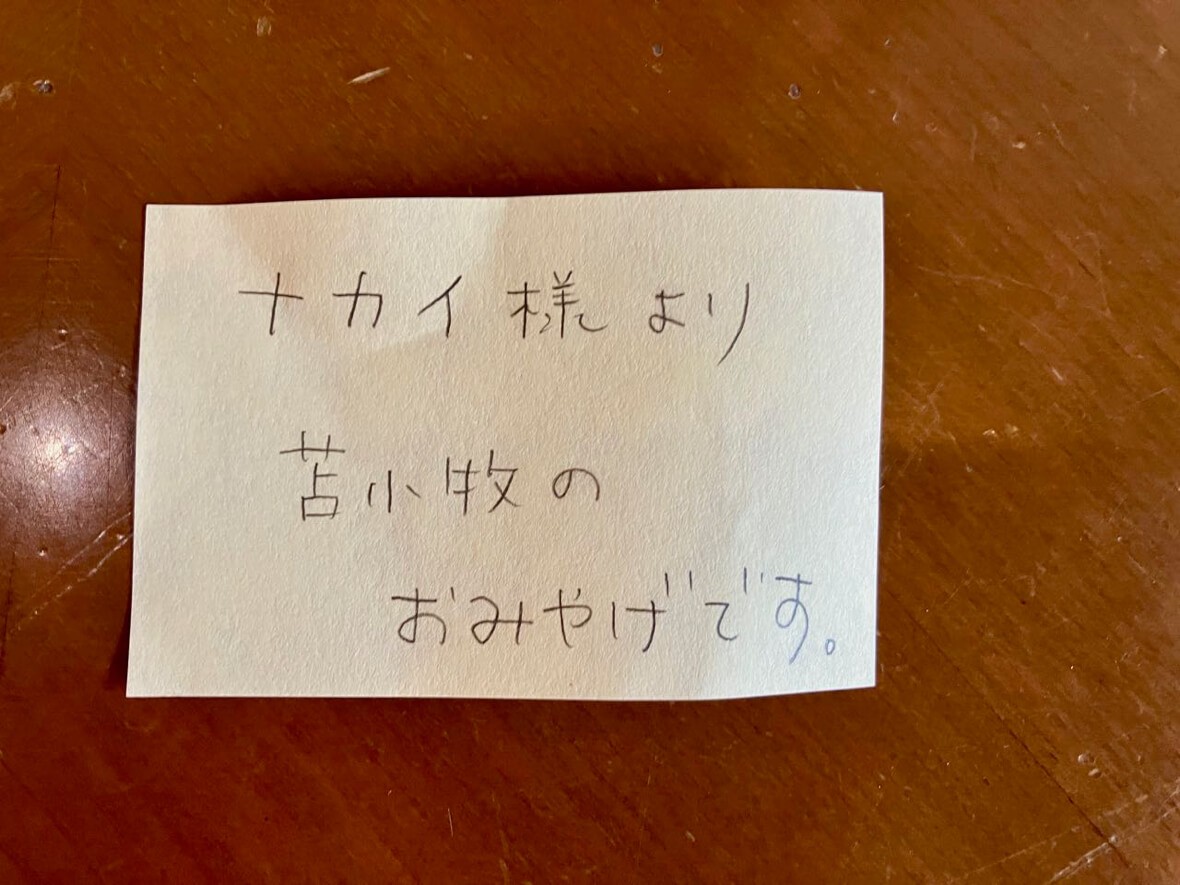 ナカイ様より
苫小牧の
おみやげです。